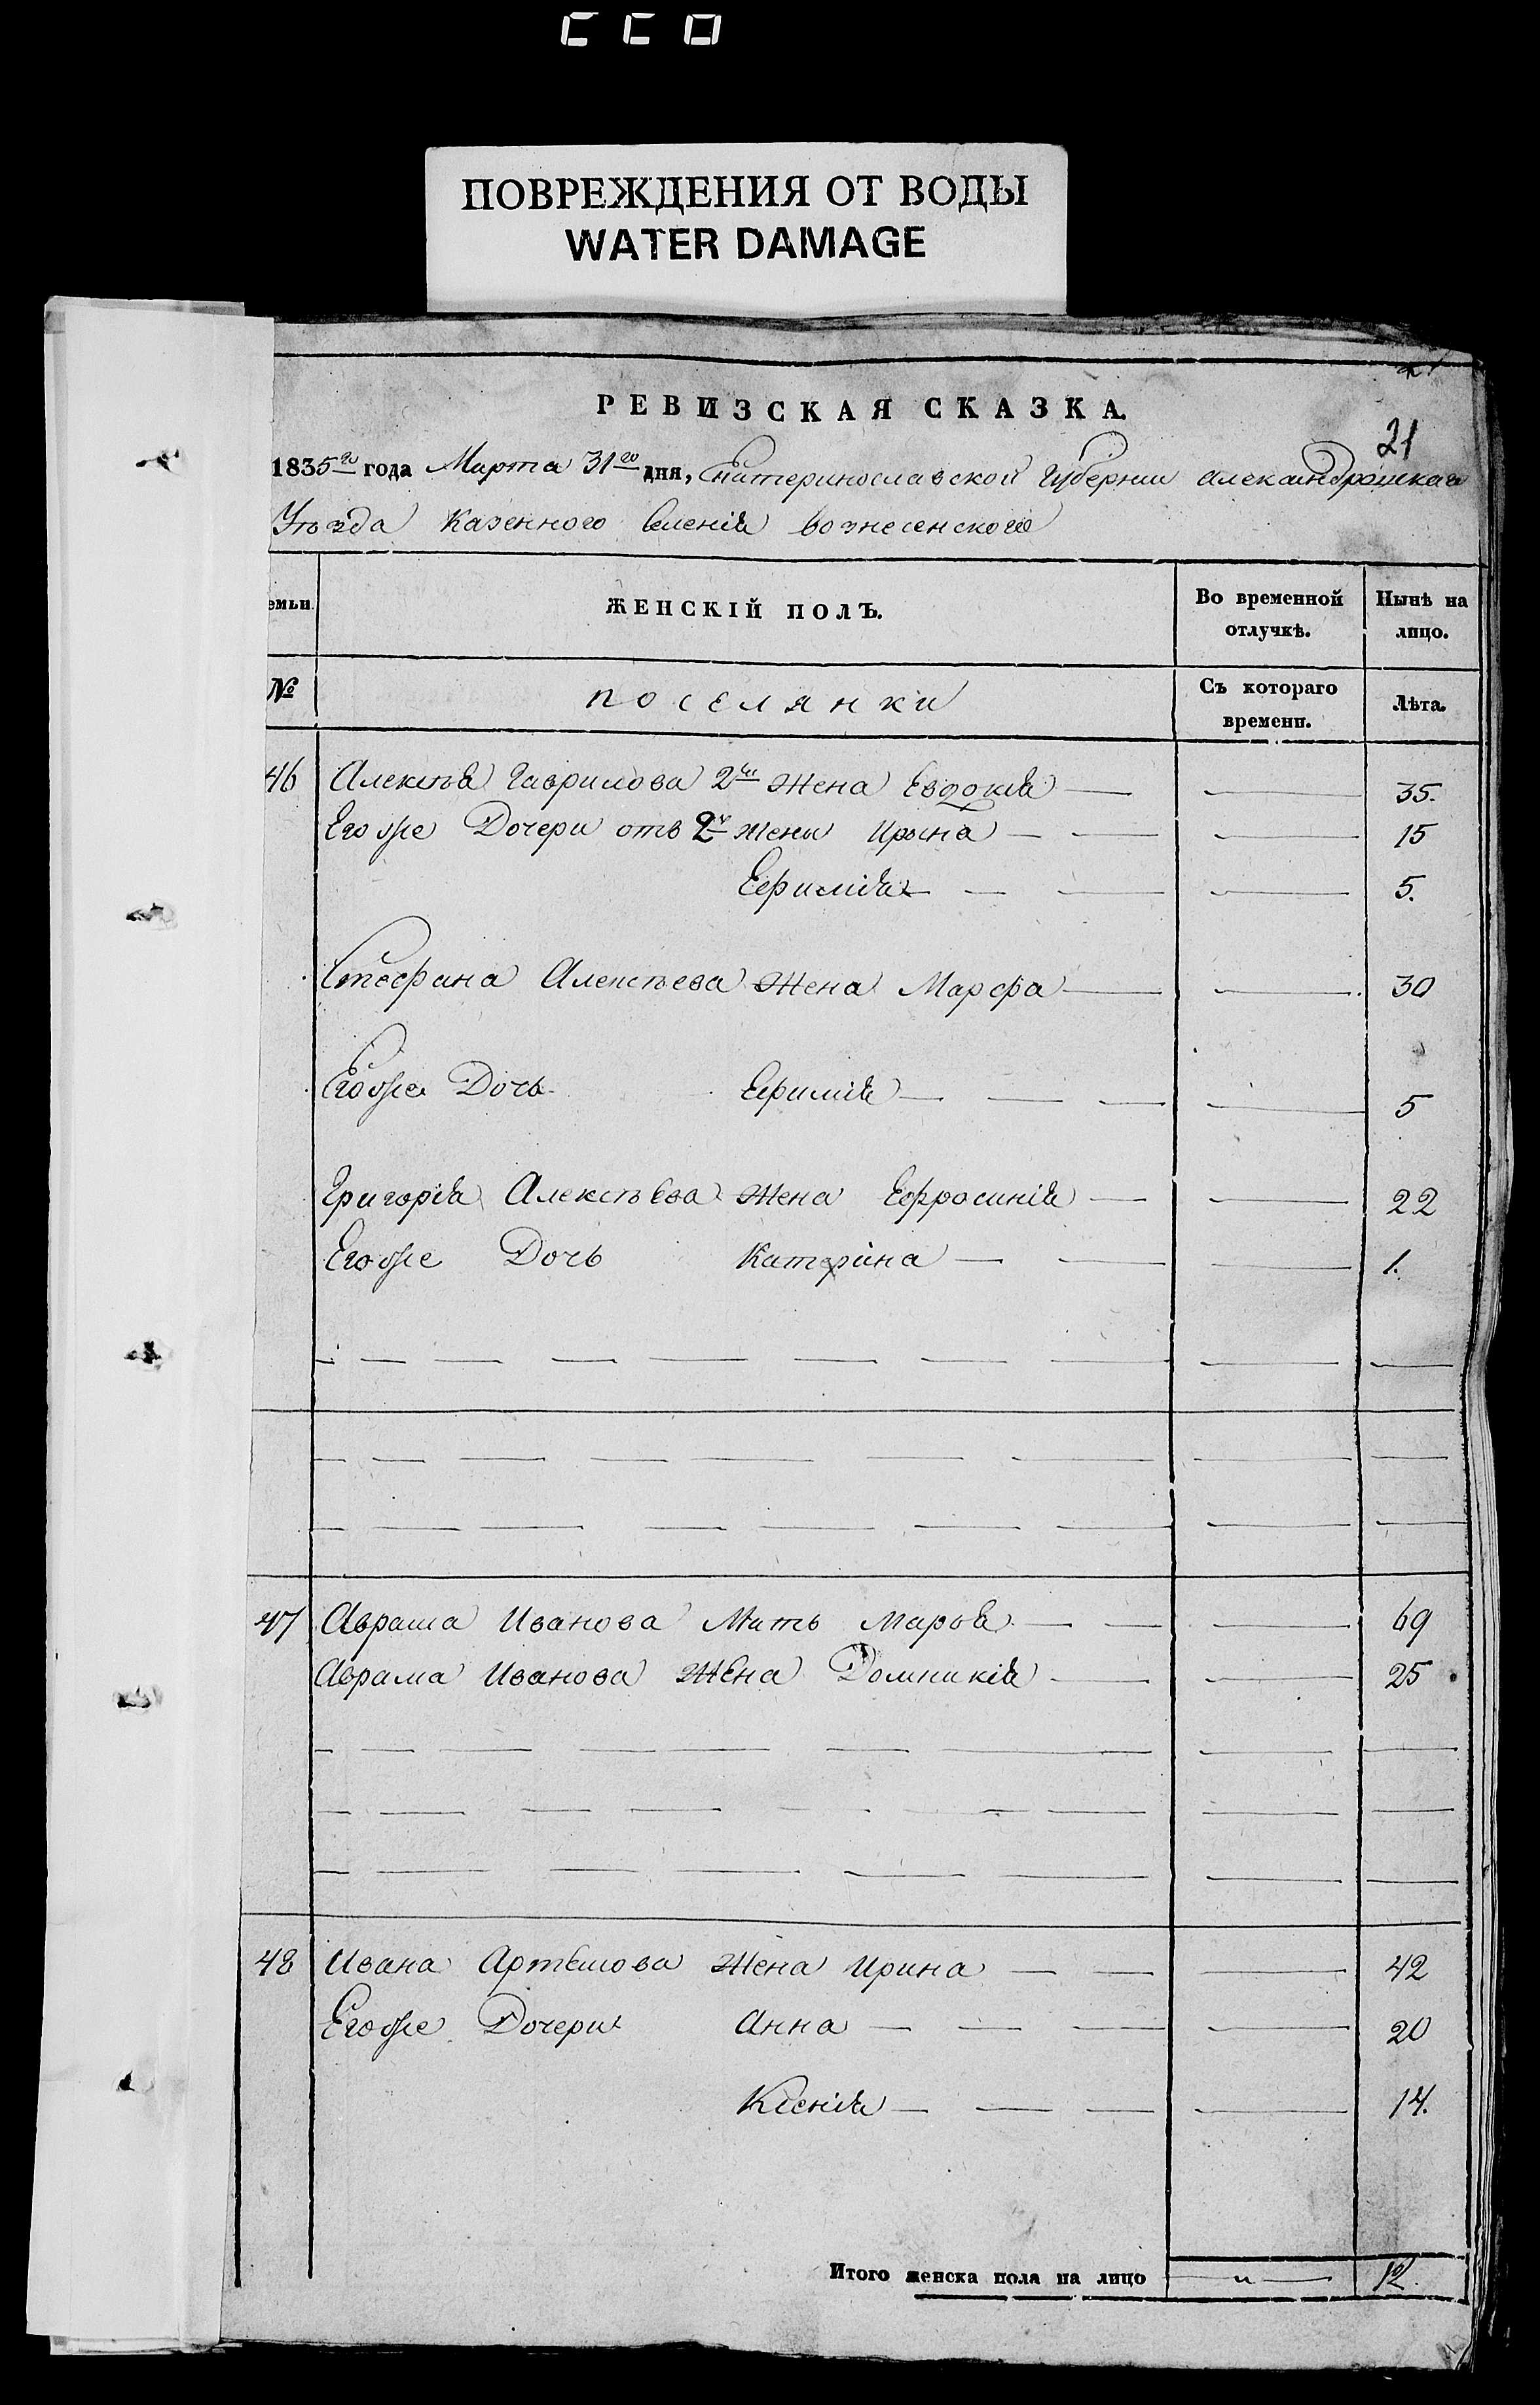 ПОВРЕЖДЕНИЯ ОТ ВОДЫ
WATER DAMAGE
РЕВИЗСКАЯ СКАЗКА.
21
1835го года Марта 31го дня, Екатеринославской Губернии Александровскаго
Уѣзда Казенного Селенія Вознесенского
емьи.
ЖЕНСКІЙ ПОЛЪ.
Во временной отлучкѣ.
Нынѣ на лицо.
№
поселянки
Съ котораго времени.
Лѣта.
46 Алексѣя Гаврилова 2й Жена Евдокія — — 35.
Егоже Дочери отъ 2й жены Ирина — — — 15
Ефимія — — — — 5.
Стефана Алексѣева Жена Марфа — — 30
Егоже Дочь Ефимія — — — — 5
Григорія Алексѣева Жена Ефросинія — — 22
Егоже Дочь Катерина — — — 1.
47 Аврама Иванова Мать Марфа — — — 69
Аврама Иванова Жена Домникія — — 25
48 Ивана Артемова Жена Ирина — — — 42
Егоже Дочери Анна — — — — 20
Ксенія — — — — 14.
Итого женска пола на лицо — „ — 12.